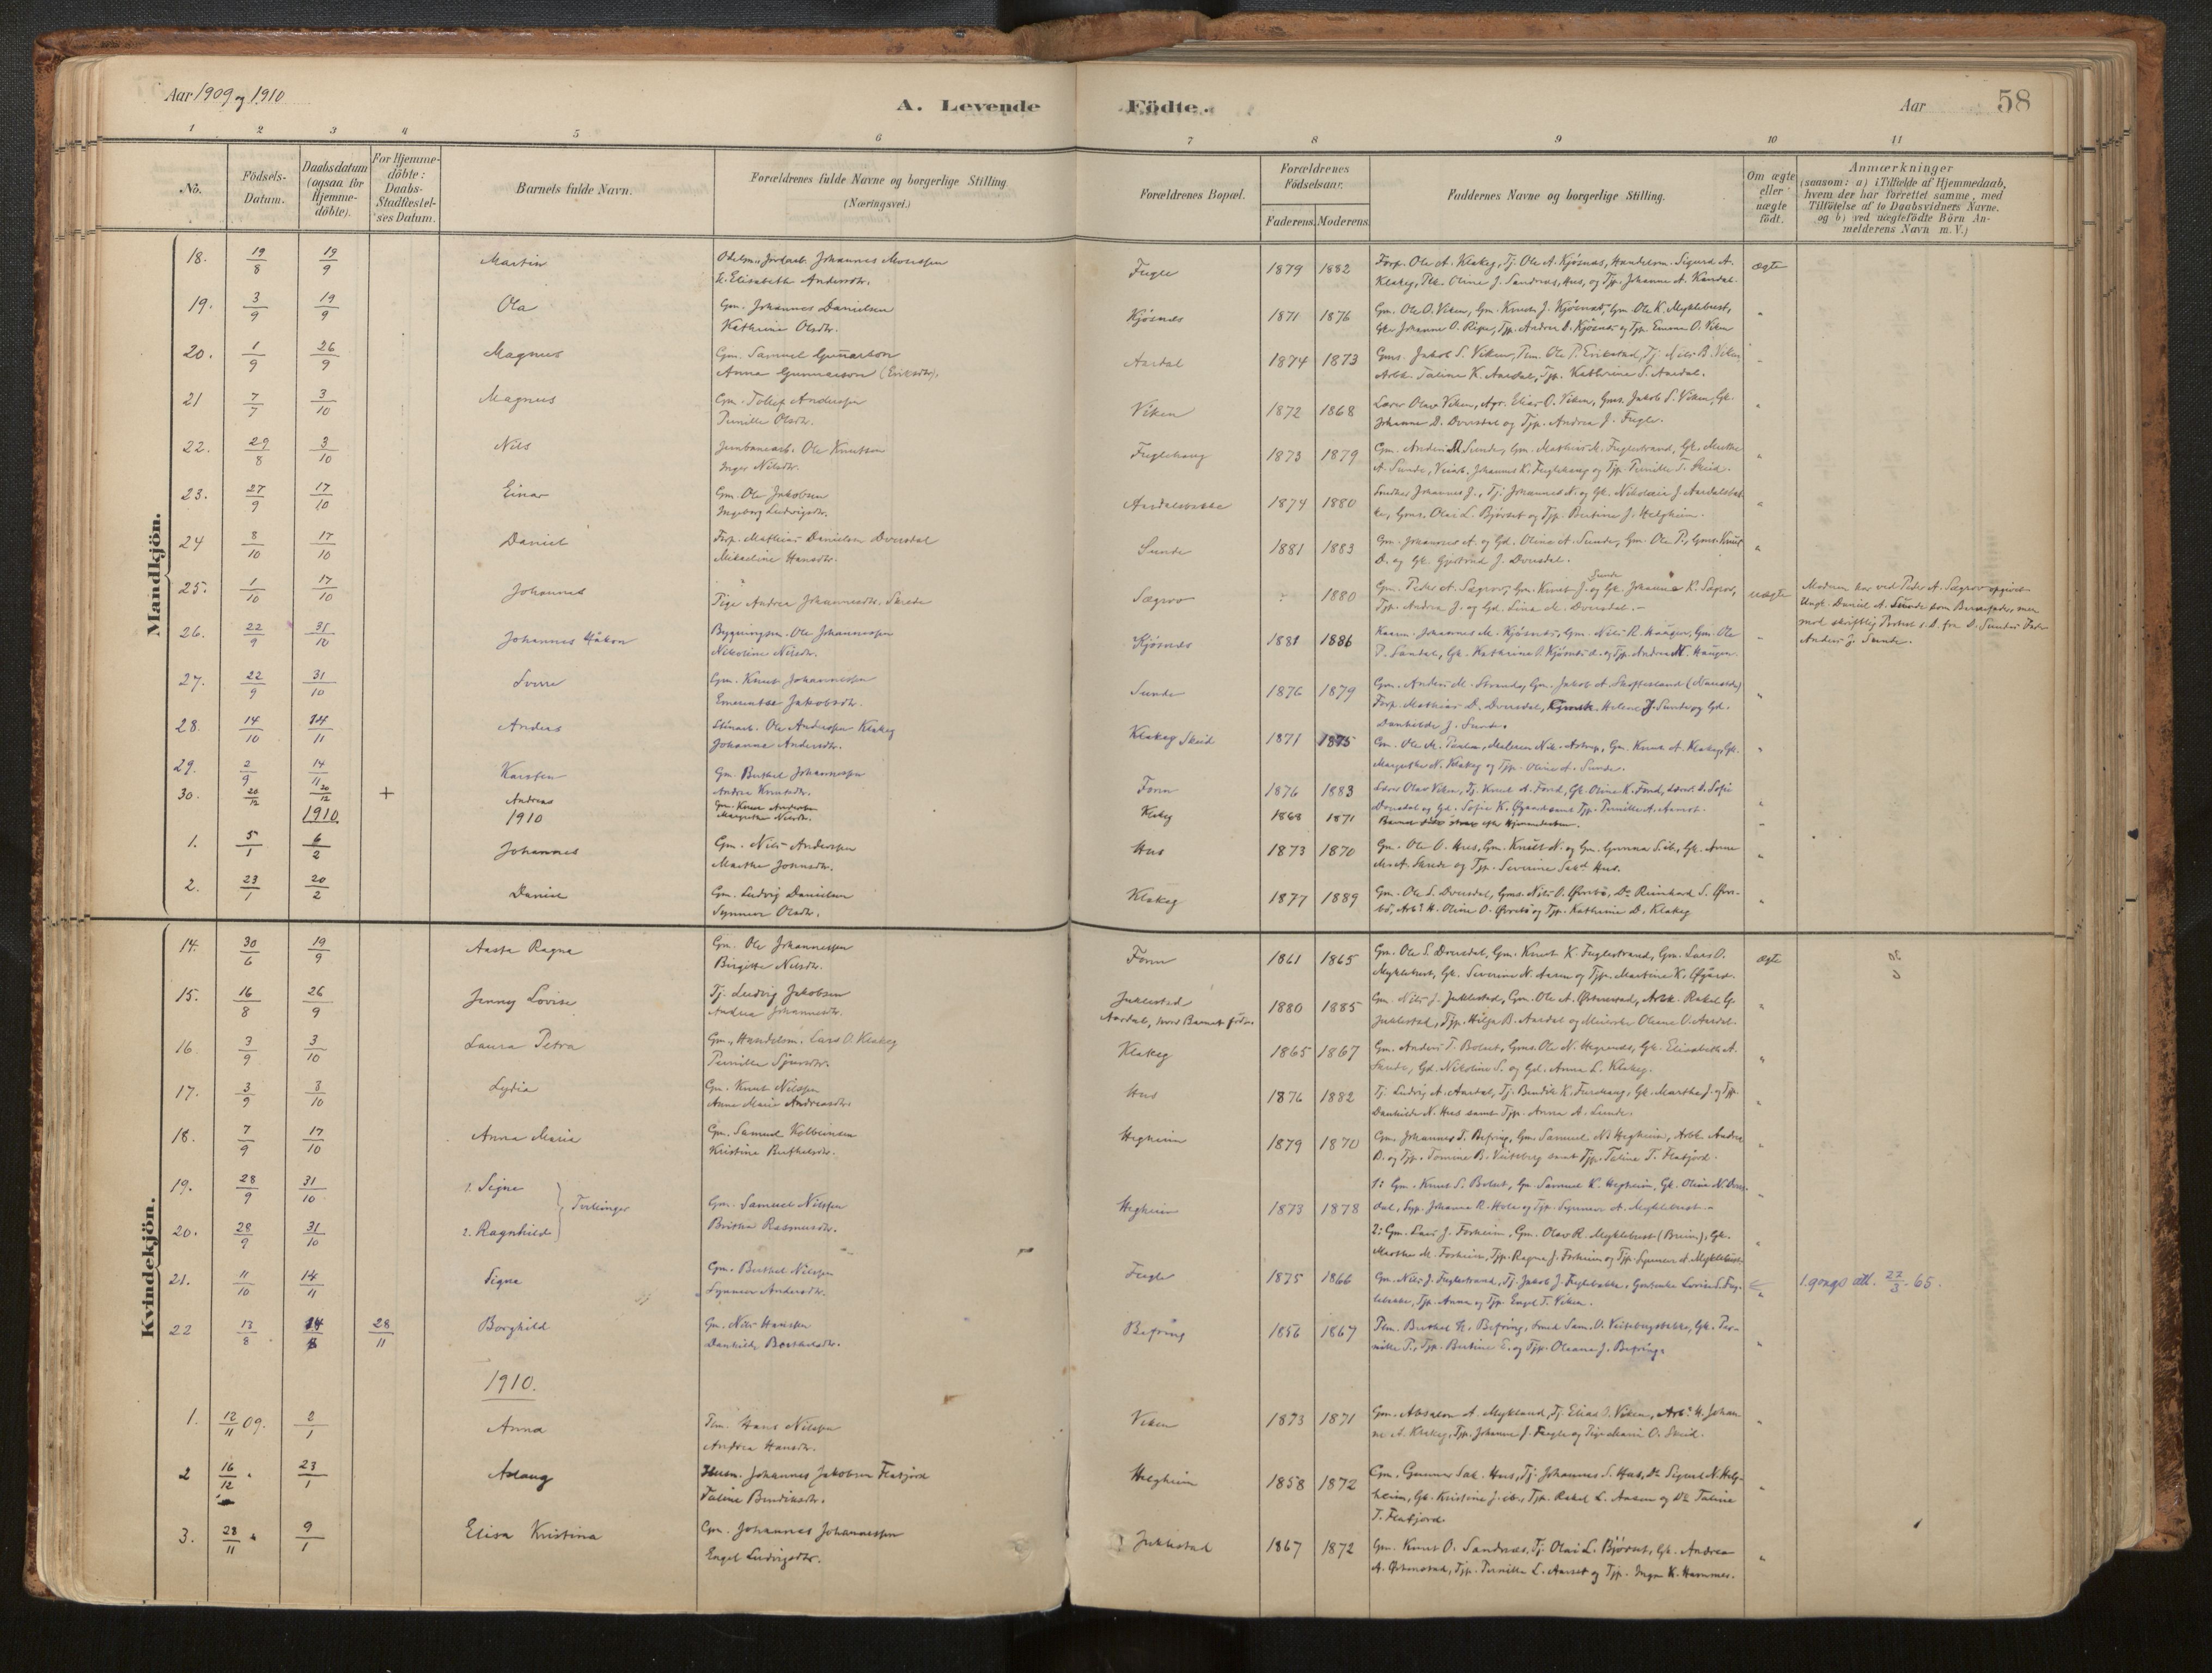 Aar 1909 og 1910
A. Levende Födte.
Aar
58
1 2 3 4 5 6 7 8 9 10 11
No.
Födsels-Datum.
Daabsdatum (ogsaa for Hjemme-döbte).
For Hjemme-döbte: Daabs-Stadfæstel-ses Datum.
Barnets fulde Navn.
Forældrenes fulde Navne og borgerlige Stilling.
(Næringsvei.)
Forældrenes Bopæl.
Forældrenes Födselsaar.
Faderens. Moderens.
Faddernes Navne og borgerlige Stilling.
Om ægte eller uægte födt.
Anmærkninger
(saasom: a) i Tilfælde af Hjemmedaab,
hvem der har forrettet samme, med
Tilföielse af to Daabsvidners Navne,
og b) ved uægtefödte Börn An-
melderens Navn m. V.)
Mandkjön.
18. 19/8 19/9 Martin Johannes
Elisabeth Andersdtr. Fugle 1879 1882 Forp. Ole A. Klakeg, Tj. Ole A. Kjösnæs, Handelsm. Sigurd A.
Klakeg, Oline J. Sandnæs, Hus, og Tjp. Johanne A. ægte
19. 3/9 19/9 Ola Gm. Johannes Danielsen
Kathrine Olsdtr. Kjösnæs 1871 1876 Gm. Ole O. Viken, Gm. Knut J. Kjösnæs, Gm. Ole K. Myklebust,
Johanne O. Tjp. Andrea D. Kjösnæs og Tjp. O. Viken "
20. 1/9 26/9 Magnus Gm. Samuel Gunnarson
Anna Gunnarson (Eriksdtr). Aardal 1874 1873 Gms. Jakob S. Viken, Ole P. Tj. Nils B. Viken,
Taline K. Aardal, Tjp. Kathrine S. Aardal. "
21 7/7 3/10 Magnus Gm. Tollef Andersen
Pernille Olsdtr. Viken 1872 1868 Lærer Olav Viken, Elias O. Viken, Gms. Jakob S. Viken, Gk.
Johanne D. Dvergsdal og Tjp. Andrea J. Fugle. "
22. 29/8 3/10 Nils Jernbanearb. Ole Knutson
Inger Nilsdtr. Fuglehaug 1873 1879 Gm. Anders M. Sunde, Gm. Mathias M. Fuglestrand, Gk. Marthe
A. Sunde, Johannes K. Fuglehaug og Tjp. Pernille T. Skeid. "
23. 27/9 17/10 Einar Gm. Ole Jakobsen
Ingeborg Ludvigsdtr. Aardalsbakke 1874 1880 Johannes J., Tj. Johannes N. og Gk. Nikolina J. Aardalsbak-
ke, Gms. Olai L. Bjørset og Tjp. Bertine J. Helgheim. "
24 8/10 17/10 Daniel Forp. Mathias Danielsen Dvergsdal
Mikaeline Hansdtr. Sunde 1881 1883 Gm. Johannes A. og Gd. Oline A. Sunde, Gm. Ole P., Gms. Knut
D. og Gk. Gjertrud J. Dvergsdal. "
25. 1/10 17/10 Johannes Pige Andrea Johannesdtr. Skrede Sægrov : 1880 Gm. Peder A. Sægrov, Gm. Knut J. Sunde og Gk. Johanne K. Sægrov,
Tjp. Andrea J. og Gd. Lina M. Dvergsdal. uægte Moderen har ved Peder A. Sægrov opgivet
Ungk. Daniel A. Sunde som Barnefader, men
mod skriftlig Protest fra D. Sundes Fader
Anders J. Sunde.
26. 22/9 31/10 Johannes Håkon Bygningsm. Ole Johannessen
Nikoline Nilsdtr. Kjösnæs 1881 1886 Johannes M. Kjösnæs, Gm. Nils R. Haugen, Gm. Ole
P. Sandal, Gk. Kathrine O. Kjösnæs og Tjp. Andrea N. Haugen. "
27. 22/9 31/10 Sverre Gm. Knut Johannessen
Emerentse Jakobsdtr. Sunde 1876 1879 Gm. Anders M. Strand, Gm. Jakob A.
Forp. Mathias D. Dvergsdal, Helene J. Sunde og Gd.
Danhilde J. Sunde. "
28. 14/10 14/11 Anders Stenarb. Ole Andersen Klakeg
Johanna Andersdtr. Klakeg Skeid 1871 1875 Gm. Ole M. Maleren Nik. Astrup, Gm. Knut A. Klakeg, Gk.
Margrethe N. Klakeg og Tjp. Oline A. Sunde. "
29. 2/9 14/11 Karsten Gm. Berthel Johannessen
Andrea Knutsdtr. Fonn 1876 1883 Lærer Olav Viken, Tj. Knut A. Fond, Gk. Oline K. Fond, Sofie
Dvergsdal og Gd. Sofie K. Øygard samt Tjp. Pernille A. Aamot. "
30. 20/12 20/12 + Andreas Gm. Knut Andersen
Margrethe Nilsdtr. Klakeg 1868 1871 Barnet døde strax efter Hjemmedaaben. "
1910 1910
1. 5/1 6/2 Johannes Gm. Nils Andersen
Marthe Jonsdtr. Hus 1873 1870 Gm. Ole O. Hus, Gm. Knut N. og Gm. Gunnar Gk. Anne
M. A. Skrede og Tjp. Severine Sak. Hus. "
2. 23/1 20/2 Daniel Gm. Ludvig Danielsen
Synneve Olsdtr. Klakeg 1877 1889 Gm. Ole S. Dvergsdal, Gms. Nils O. Ørrebø, Do Reinhard S. Ørre-
bø, Arb. H. Oline O. Ørrebø og Tjp. Kathrine D. Klakeg "
Kvindekjön.
14. 30/6 19/9 Aasta Ragna Gm. Ole Johannessen
Birgitte Nilsdtr. Fonn 1861 1865 Gm. Ole S. Dvergsdal, Gm. Knut K. Fuglestrand, Gm. Lars O.
Myklebust, Gk. Severine N. Aasen og Tjp. Martine K. Øygard. ægte
15. 16/8 26/9 Jenny Lovise Tj. Ludvig Jakobsen
Andrea Johannesdtr. Juklestad
Aardal, hvor Barnet födtes 1880 1885 Gm. Nils J. Juklestad, Gm. Ole A. Østenstad, Arbk. Rakel G.
Juklestad, Tjp. Hilja B. Aardal og Meierske Oleane O. Aardal. "
16. 3/9 3/10 Laura Petra Gm., Handelsm. Lars O. Klakeg
Pernille Sjursdtr. Klakeg 1865 1867 Gm. Anders T. Bolset, Gms. Ole N. Hegrenes, Gk. Elisabeth A.
Skrede, Gd. Nikoline S. og Gd. Anna L. Klakeg. "
17. 3/9 3/10 Lydia Gm. Knut Nilssen
Anne Marie Andreasdtr. Hus 1876 1882 Tj. Ludvig A. Aardal, Tj. Bendik K. Furehaug, Gk. Marthe J. og Tjp.
Danhilde N. Hus samt Tjp. Anna A. Sunde. "
18. 7/9 17/10 Anna Maria Gm. Samuel Kolbeinsen
Kristine Berthelsdtr. Hegheim 1879 1870 Gm. Johannes T. Befring, Gm. Samuel N. Hegheim, Arbk. Andrea
B. og Tjp. Tomine B. Veiteberg samt Tjp. Taline T. Flatjord. "
19. 28/9 31/10 1. Signe
20. 28/9 31/10 2. Ragnhild
Tvillinger Gm. Samuel Nilssen
Brithe Rasmusdtr. Hegheim 1873 1878 1: Gm. Knut S. Bolset, Gm. Samuel K. Hegheim, Gk. Oline N. Dvergs-
dal, Tjp. Johanne R. Hole og Tjp. Synneve A. Myklebust. "
2: Gm. Lars J. Forheim, Gm. Olav R. Myklebust (Breim), Gk.
Marthe M. Forheim, Tjp. Ragna J. Forheim og Tjp. Synneve A. Myklebust. "
21. 11/10 14/11 Signe Gm. Berthel Nilssen
Synneve Andersdtr. Fugle 1875 1866 Gm. Nils J. Fuglestrand, Tj. Jakob J. Fuglebakke, Lovise S. Fug-
lebakke, Tjp. Anna og Tjp. Engel T. Viken. " 1. gongs att. 22/3-65.
22 13/8 14/8 28/11 Borghild Gm. Nils Hanssen
Danhilde Berthelsdtr. Befring 1856 1867 Berthel H. Befring, Smed Sam. O. Veitebergsbakke, Gk. Per-
nille P., Tjp. Bertine E. og Tjp. Oleane J. Befring. "
1910.
1. 12/11 09. 2/1 Anna Hans Nilssen
Andrea Hansdtr. Viken 1873 1871 Gm. Absalon A. Myklund, Tj. Elias O. Viken, Arb. H. Johan-
ne A. Klakeg, Tjp. Johanne J. Fugle og Pige O. Skeid. "
2 16/12 " 23/1 Aslaug Husm. Johannes Jakobsen Flatjord
Taline Bendiksdtr. Helgheim 1858 1872 Gm. Gunnar Sak. Hus, Tj. Johannes S. Hus, Do Sigurd N. Helg-
heim, Gk. Kristine J. ib., Tjp. Rakel L. Aasen og Do Taline
T. Flatjord. "
3. 28/11 " 9/1 Elisa Kristina Gm. Johannes Johannessen
Engel Ludvigsdtr. Juklestad 1867 1872 Gm. Knut O. Sandnæs, Tj. Olai L. Bjørset, Gk. Andrea
A. Østenstad, Tjp. Pernille L. Aarset og Tjp. Inga K. Hammer. "